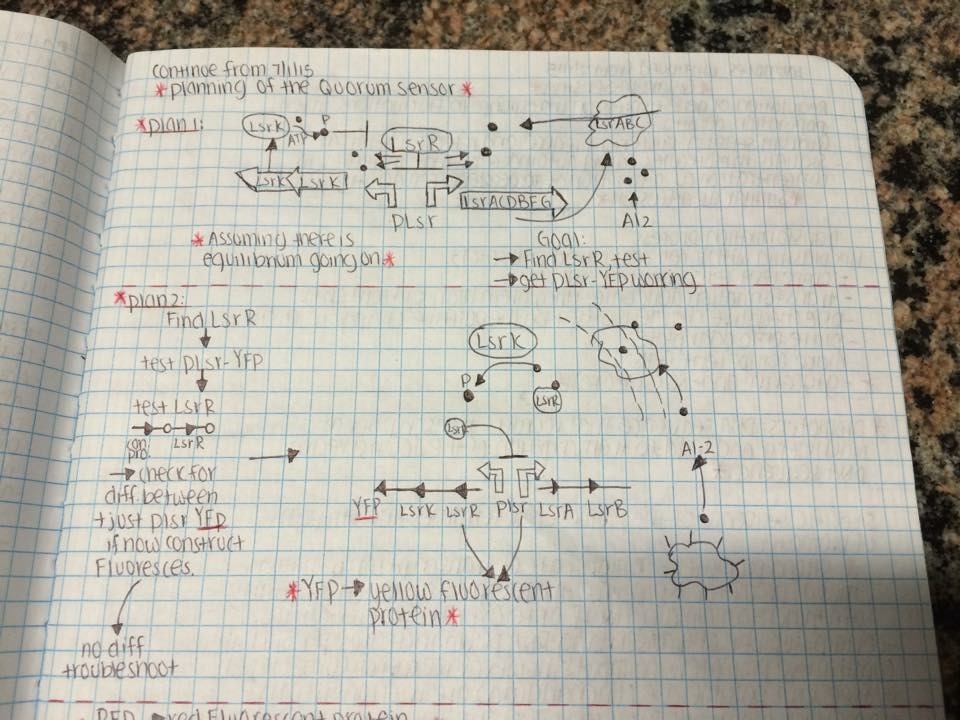 continue from 7/1/15
*planning of the Quorum sensor*
*plan 1:
LsrK
ATP
P
LsrR
LsrABC
LsrK LsrK
PLsr
LsrACDBFG
AI2
*Assuming there is
equilibrium going on*
Goal:
→ Find LsrR, test
→ get PLsr-YFP working
*plan 2:
Find LsrR
test PLsr-YFP
test LsrR
con.
pro.
LsrR
→ check for
diff between
+just plsr YFP
if now construct
Fluoresces.
no diff
troubleshoot
LsrK
P
LsrR
Lsr
AI-2
YFP LsrK LsrR Plsr LsrA LsrB
*YFP → yellow fluorescent
protein*
RFP → red Fluorescent protein